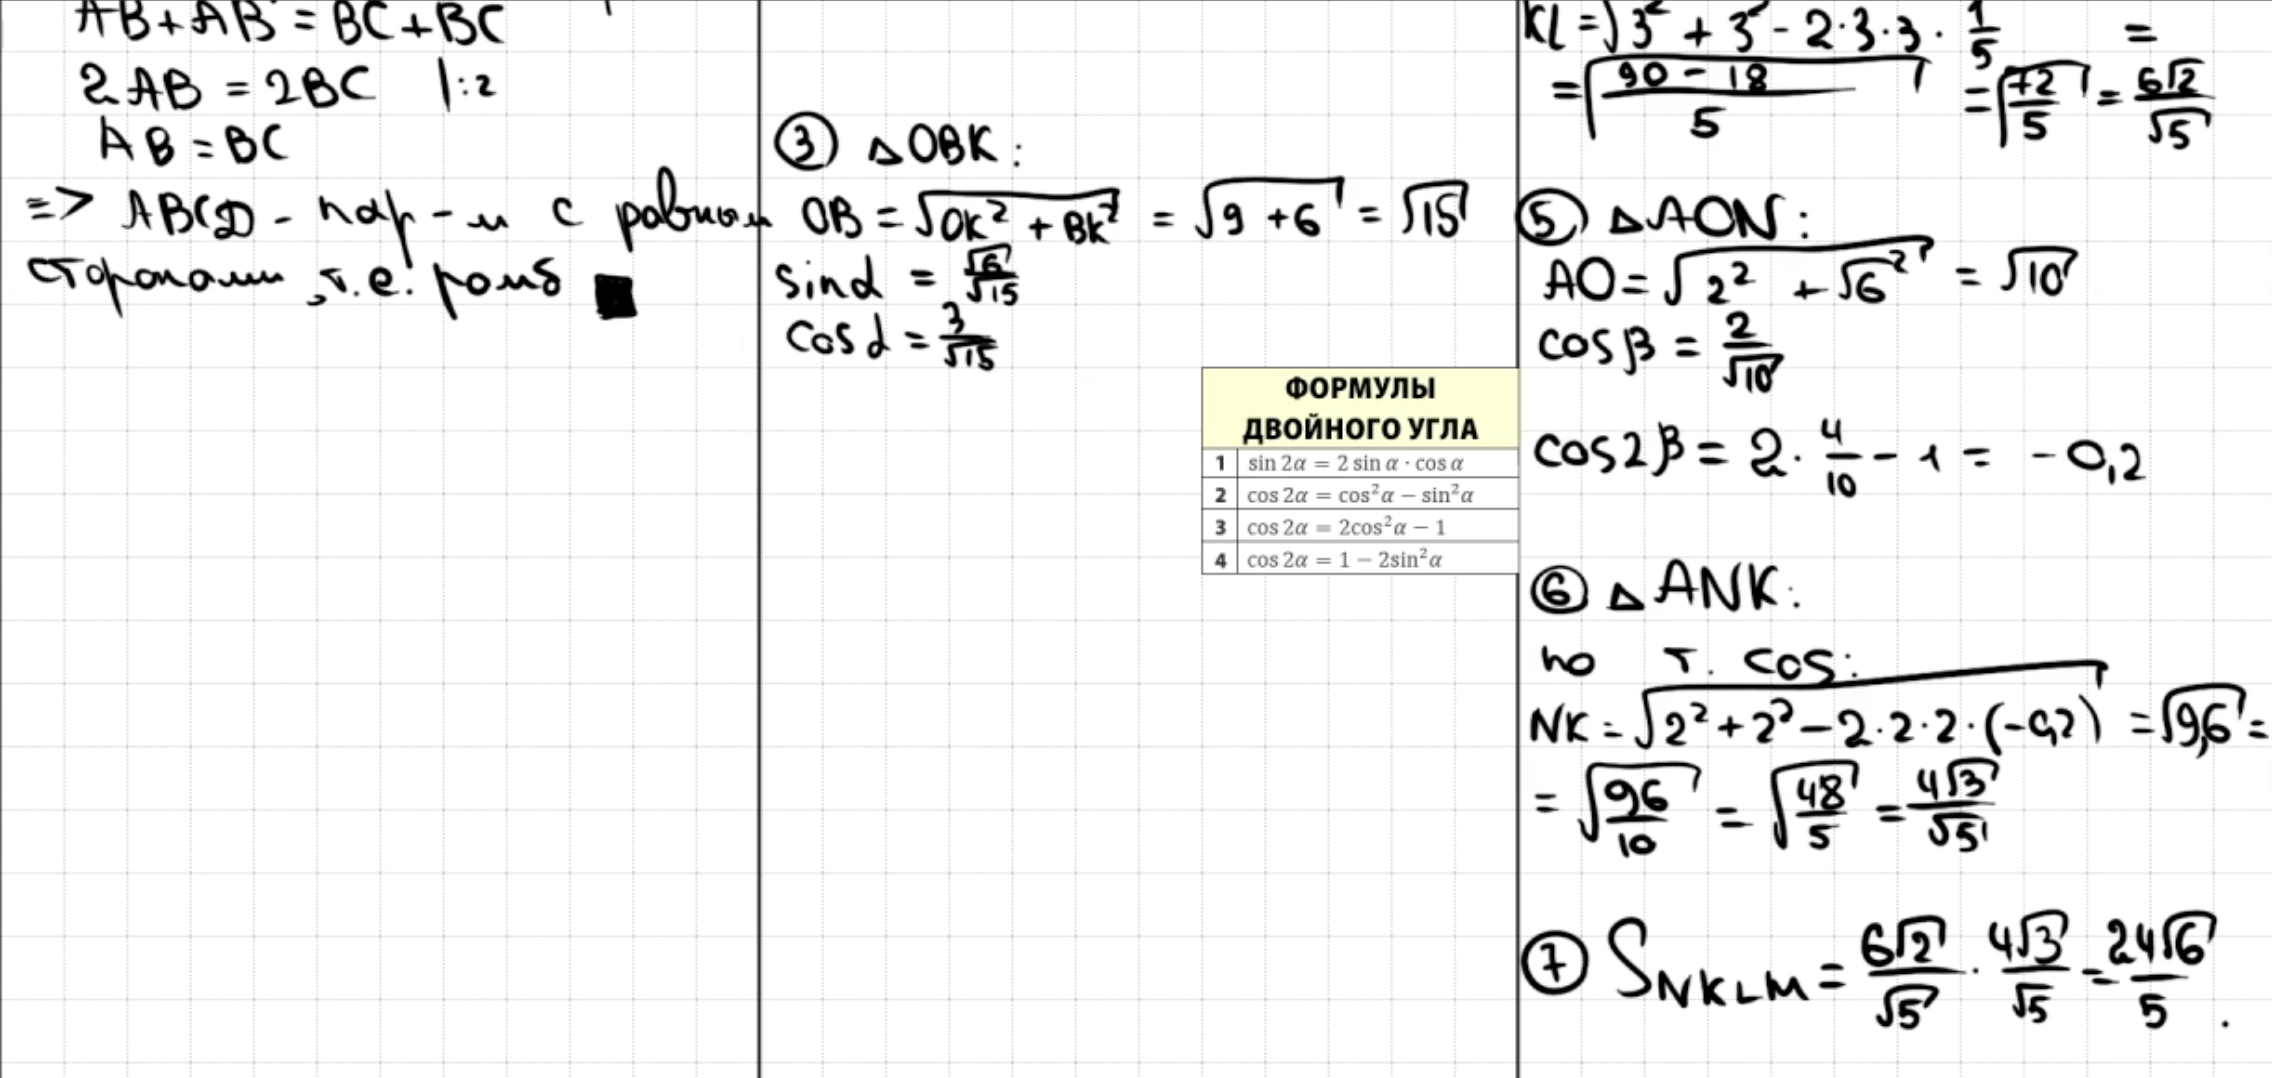 AB+AB = BC+BC
2AB = 2BC |:2
AB = BC
=> ABCD - пар-м с равным
сторонами, т.е. ромб ■
③ △OBK:
OB = √(OK² + BK²) = √(9 + 6) = √15
sinα = √6/√15
cosα = 3/√15
ФОРМУЛЫ
ДВОЙНОГО УГЛА
1 sin 2α = 2 sin α · cos α
2 cos 2α = cos²α − sin²α
3 cos 2α = 2cos²α − 1
4 cos 2α = 1 − 2sin²α
KL = √(3² + 3² - 2·3·3· 1/5) =
= √((90 - 18)/5) = √(72/5) = 6√2/√5
⑤ △AON:
AO = √(2² + √6²) = √10
cosβ = 2/√10
cos2β = 2· 4/10 - 1 = -0,2
⑥ △ANK:
по т. cos:
NK = √(2² + 2² - 2·2·2·(-0,2)) = √9,6 =
= √(96/10) = √(48/5) = 4√3/√5
⑦ SNKLM = 6√2/√5 · 4√3/√5 = 24√6/5 .